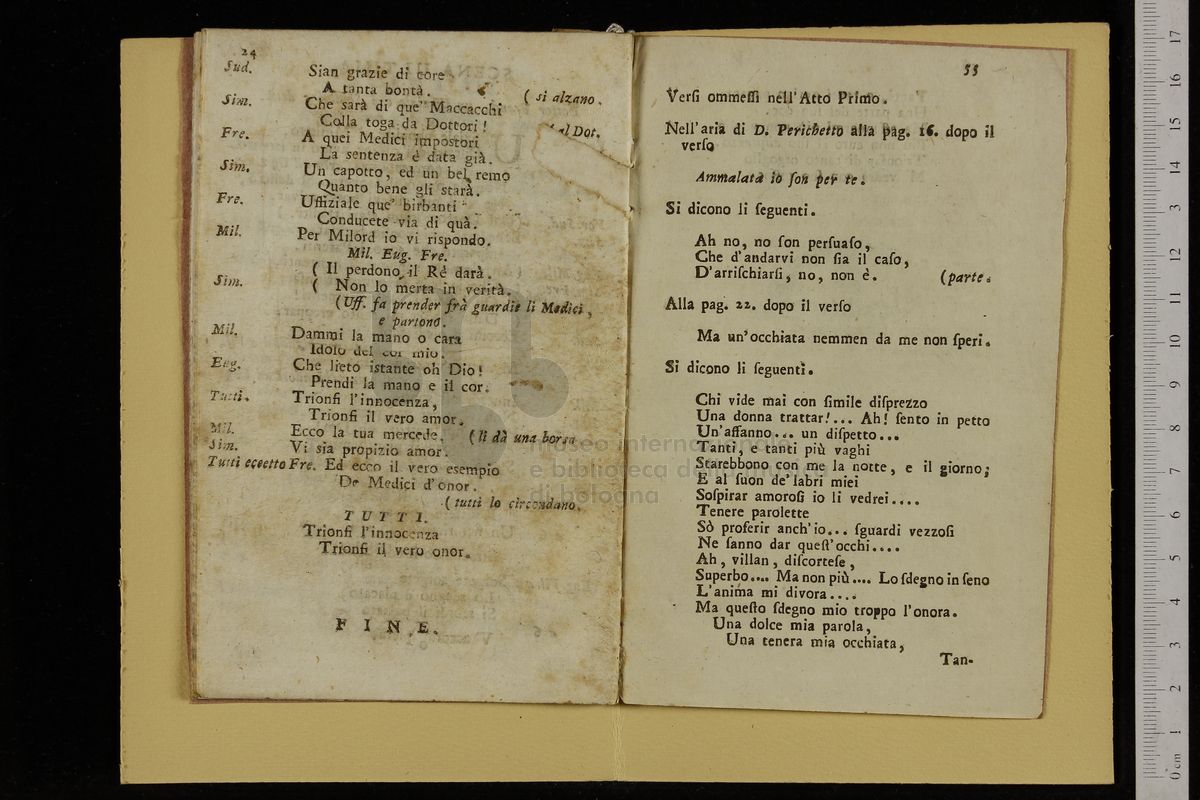 24
Sud. Sian grazie di core
A tanta bontà. ( si alzano.
Sim. Che sarà di que' Maccacchi
Colla toga da Dottori! al Dot.
Fre. A quei Medici impostori
La sentenza è data già.
Sim. Un capotto, ed un bel remo
Quanto bene gli starà.
Fre. Uffiziale que' birbanti
Conducete via di quà.
Mil. Per Milord io vi rispondo.
Mil. Eug. Fre.
( Il perdono il Rè darà.
Sim. ( Non lo merta in verità.
(Uff. fa prender frà guardie li Medici,
e partono.
Mil. Dammi la mano o cara
Idolo del cor mio.
Eug. Che lieto istante oh Dio!
Prendi la mano e il cor.
Tutti. Trionfi l'innocenza,
Trionfi il vero amor.
Mil. Ecco la tua mercede. (li dà una borsa
Sim. Vi sia propizio amor.
Tutti eccetto Fre. Ed ecco il vero esempio
De Medici d'onor.
( tutti lo circondano.
TUTTI.
Trionfi l'innocenza
Trionfi il vero onor.
FINE.
55
Verſi ommeſſi nell'Atto Primo.
Nell'aria di D. Perichetto alla pag. 16. dopo il
verſo
Ammalata io ſon per te.
Si dicono li ſeguenti.
Ah no, no ſon perſuaſo,
Che d'andarvi non ſia il caſo,
D'arriſchiarſi, no, non è. (parte.
Alla pag. 22. dopo il verſo
Ma un'occhiata nemmen da me non ſperi.
Si dicono li ſeguenti.
Chi vide mai con ſimile diſprezzo
Una donna trattar!... Ah! ſento in petto
Un'affanno... un diſpetto...
Tanti, e tanti più vaghi
Starebbono con me la notte, e il giorno;
E al ſuon de'labri miei
Soſpirar amoroſi io li vedrei....
Tenere parolette
Sò proferir anch'io... ſguardi vezzoſi
Ne ſanno dar queſt'occhi....
Ah, villan, diſcorteſe,
Superbo.... Ma non più.... Lo ſdegno in ſeno
L'anima mi divora....
Ma queſto ſdegno mio troppo l'onora.
Una dolce mia parola,
Una tenera mia occhiata,
Tan-
museo internazionale
e biblioteca della musica
di bologna
0 cm 1 2 3 4 5 6 7 8 9 10 11 12 13 14 15 16 17